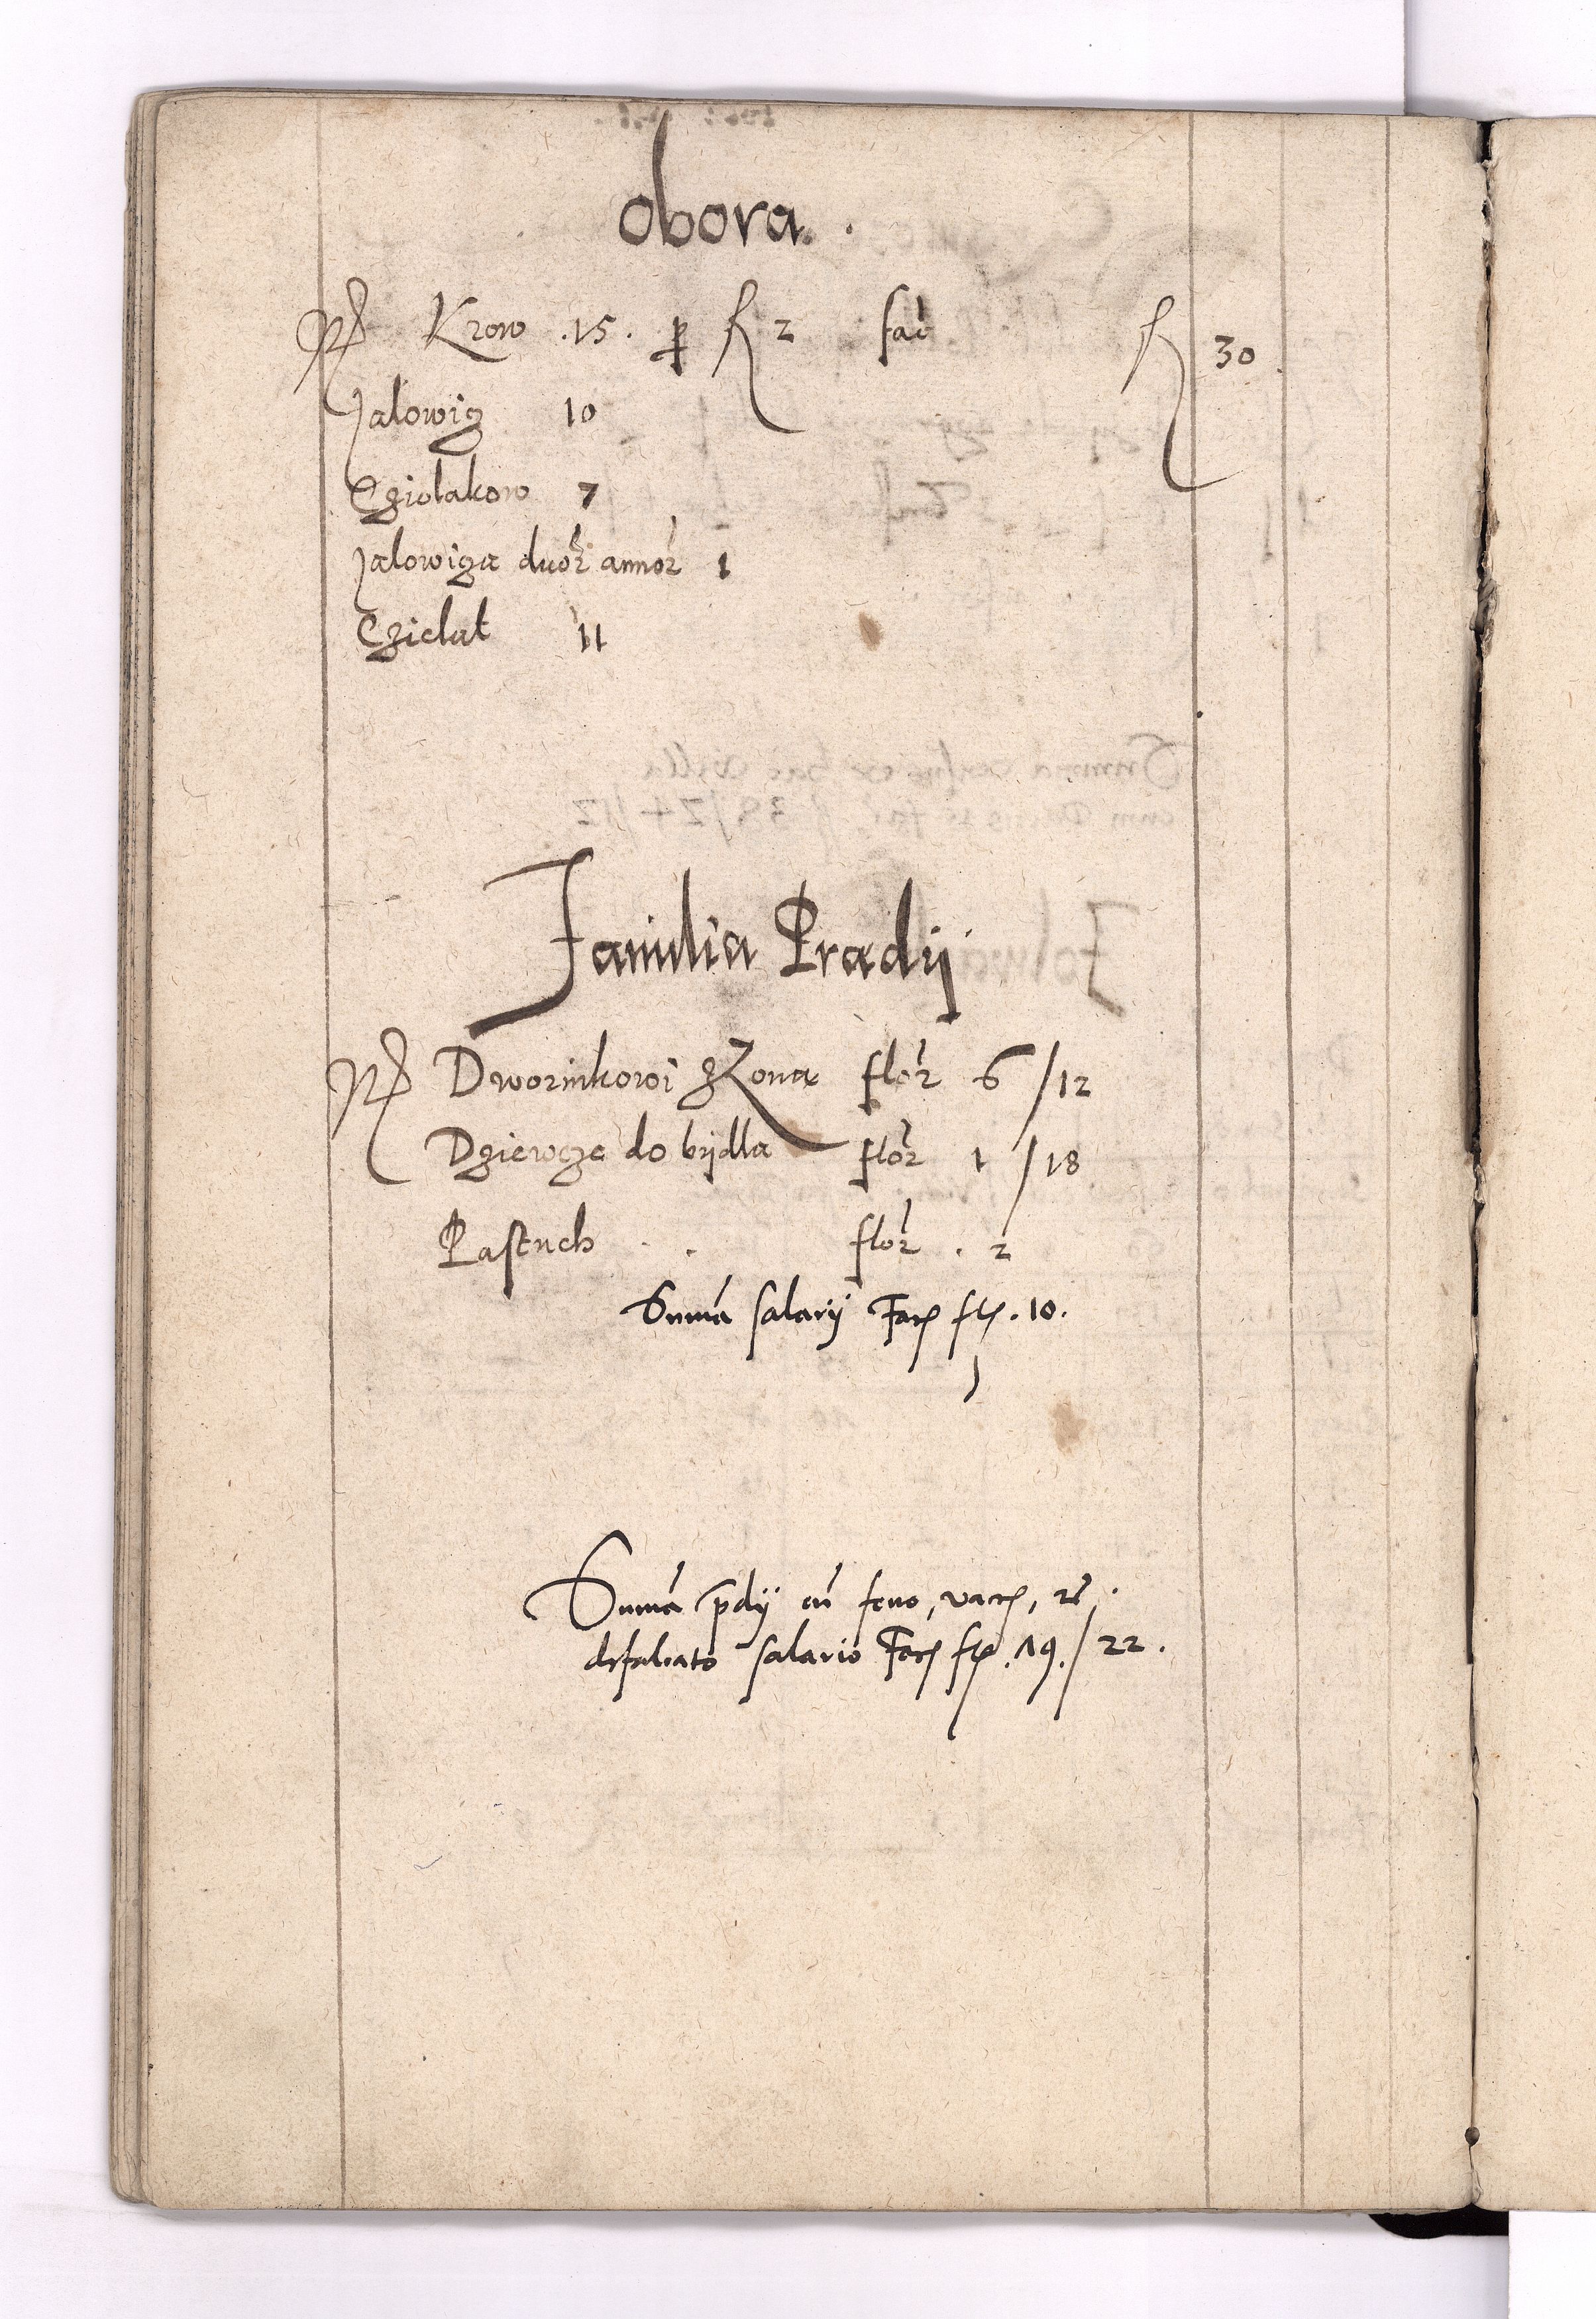 obora.
Krow .15. ꝑ fl 2 fac̄ fl 30
Jalowiz 10
Cziolakow 7
Jalowiza duor̄ annor̄ 1
Czielat 11
Familia Pradij
Dwornikowi zZona flor̄ 6/12
Dziewcze do bydla flor̄ 1/18
Pastuch . . flor̄ . 2
Summa salarij Fac̄ fl. 10.
Summa p̄dij cū feno, vacc̄,
defalcato salario Fac̄ fl. 19./22.